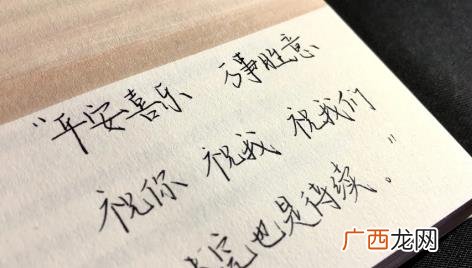 “平安喜乐 万事胜意
祝你 祝我 祝我们
完也是待续。”
广西龙网